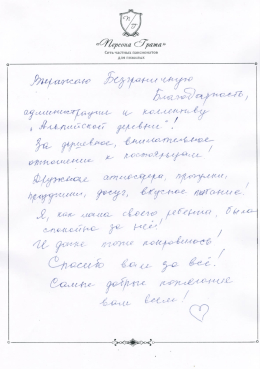 «Перспектива»
Сеть частных пансионатов
для пожилых
Выражаю Безграничную
Благодарность,
администрации и коллективу
„Альпийской деревни"!
За душевное, внимательное
отношение к постояльцам!
Дружеская атмосфера, прогулки,
праздники, досуг, вкусное питание!
Я, как мама своего ребенка, была
спокойна за неё!
И даже тоже понравилось!
Спасибо вам за всё!
Самые добрые пожелания
вам всем!